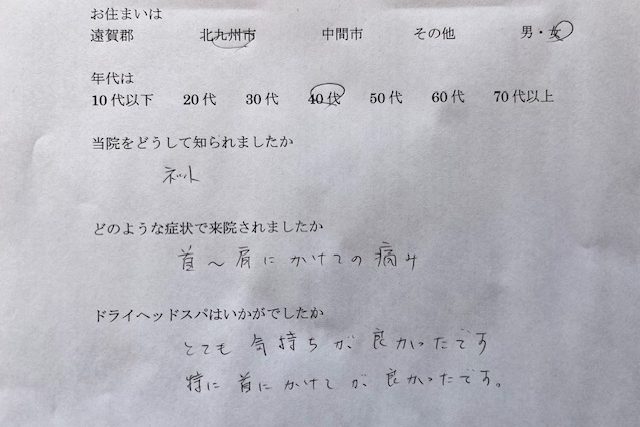 お住まいは
遠賀郡 北九州市 中間市 その他 男・女
年代は
10代以下 20代 30代 40代 50代 60代 70代以上
当院をどうして知られましたか
ネット
どのような症状で来院されましたか
首～肩にかけての痛み
ドライヘッドスパはいかがでしたか
とても気持ちが良かったです
特に首にかけてが良かったです。